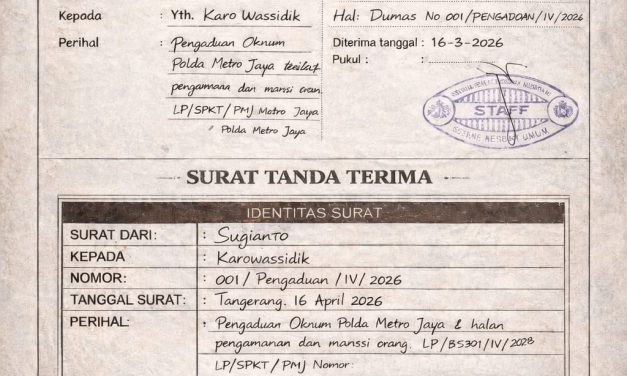 Kepada : Yth. Karo Wassidik
Hal: Dumas No 001/PENGADOAN/IV/2026
Perihal : Pengaduan Oknum
Diterima tanggal : 16-3-2026
Polda Metro Jaya
Pukul :
pengamanan dan manssi oran.
LP/SPKT/PMJ Metro Jaya
Polda Metro Jaya
STAFF
SURAT TANDA TERIMA
IDENTITAS SURAT
SURAT DARI: : Sugianto
KEPADA : Karowassidik
NOMOR: : 001/Pengaduan/IV/2026
TANGGAL SURAT: : Tangerang. 16 April 2026
PERIHAL: : Pengaduan Oknum Polda Metro Jaya & halan
pengamanan dan manssi orang. LP/B5301/IV/2028
LP/SPKT/PMJ Nomor: